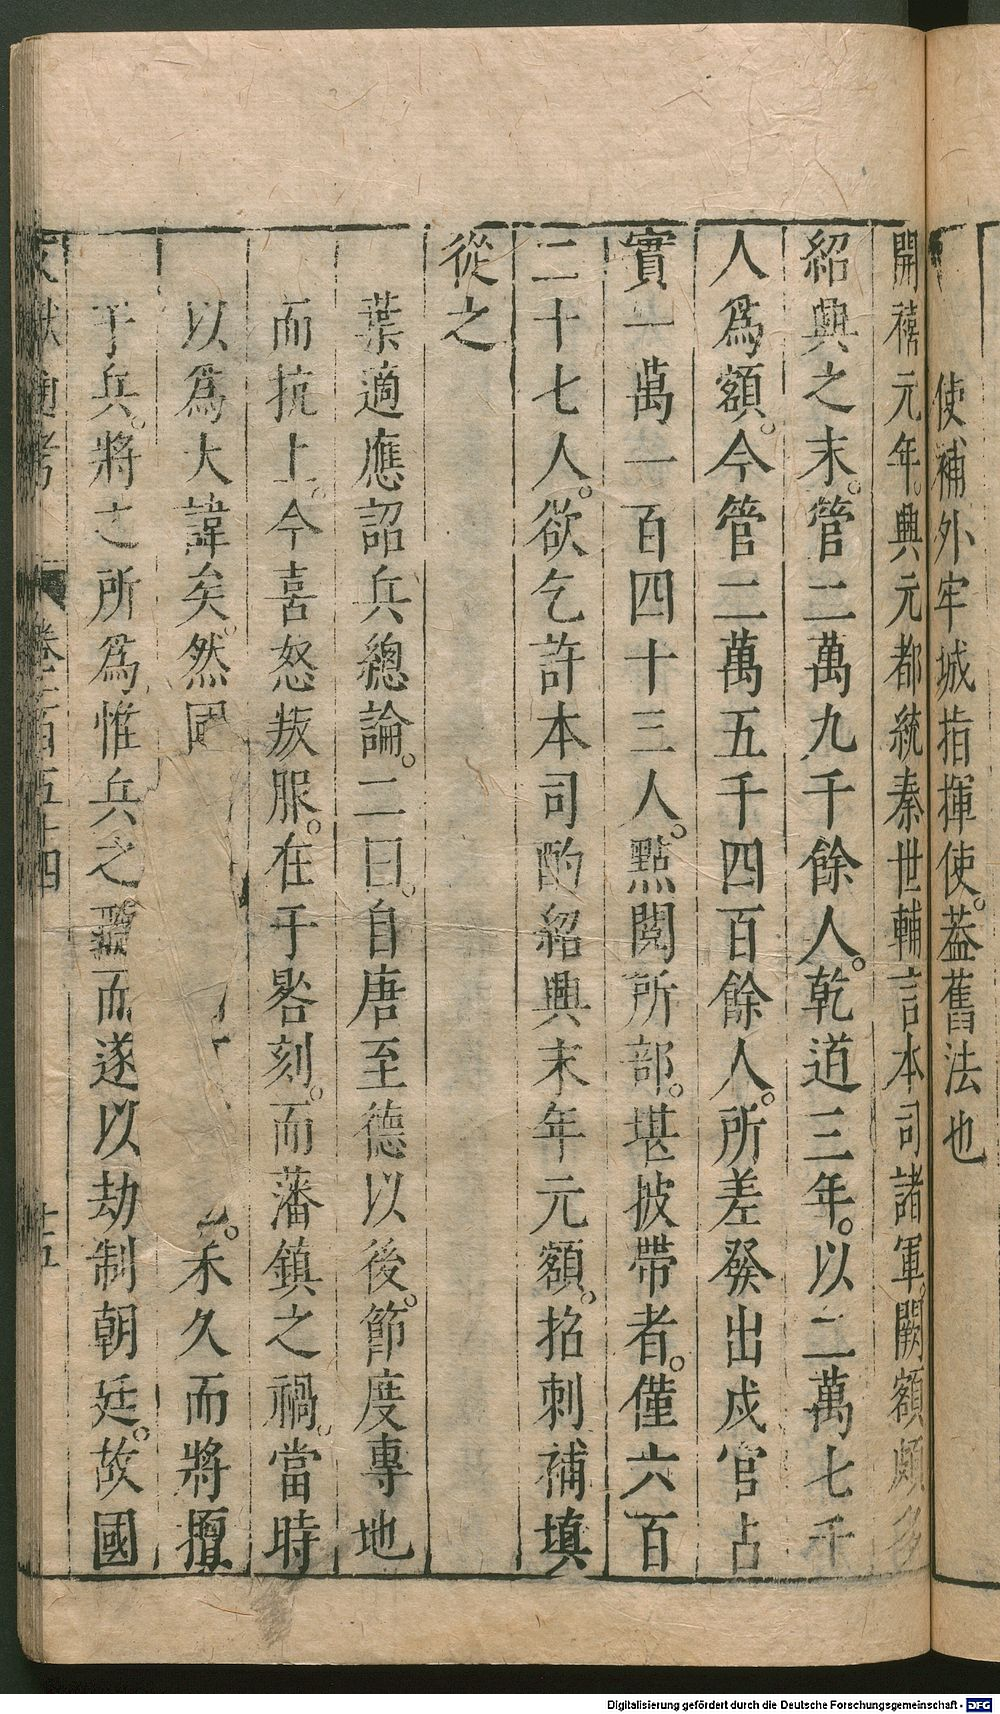 使補外牢城指揮使。葢舊法也
開禧元年。興元都統秦世輔言本司諸軍。闕額頗多
紹興之末。管二萬九千餘人。乾道三年。以二萬七千
人爲額。今管二萬五千四百餘人。所差發出戍官占
實一萬一百四十三人。點閱所部。堪披帶者。僅六百
二十七人。欲乞許本司酌紹興末年元額。招刺補填
從之
葉適應詔兵總論。二曰。自唐至德以後。節度專地
而抗上。今喜怒叛服。在于晷刻。而藩鎮之禍。當時
以爲大諱矣。然國
。未久而將擅
于兵。將之所爲惟兵之聽而遂以劫制朝廷。故國
文獻通考 卷一百五十四 十五
Digitalisierung gefördert durch die Deutsche Forschungsgemeinschaft - DFG